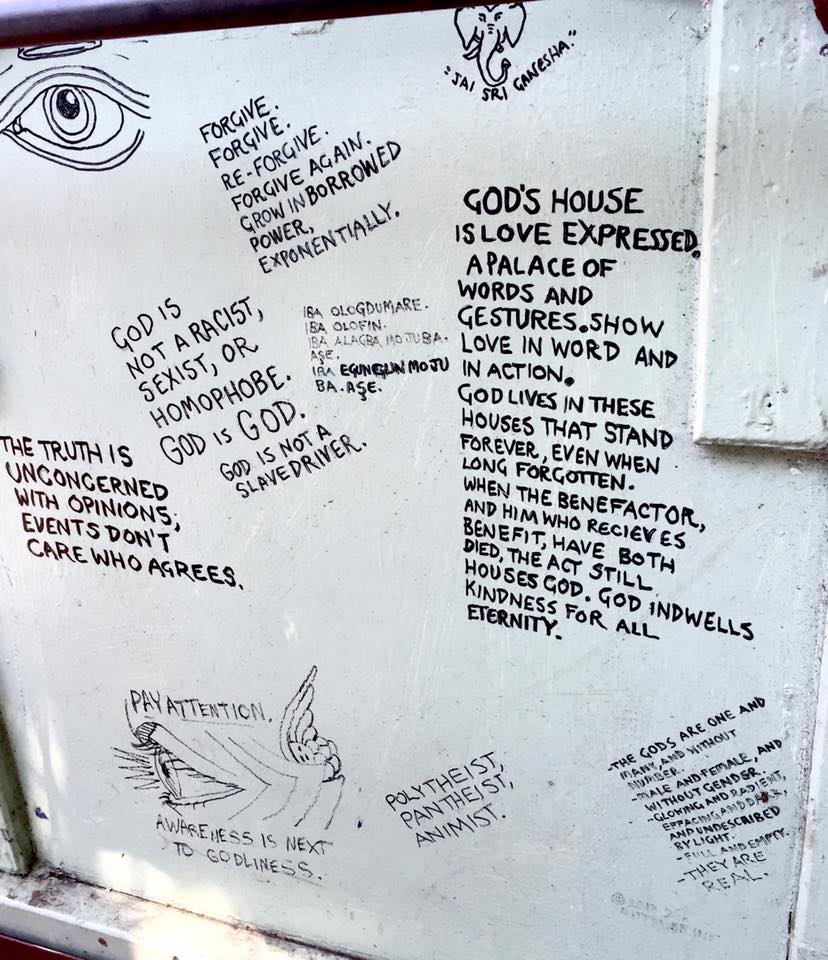 "JAI SRI GANESHA."
FORGIVE.
FORGIVE.
RE-FORGIVE.
FORGIVE AGAIN.
GROW IN BORROWED
POWER,
EXPONENTIALLY.
GOD'S HOUSE
IS LOVE EXPRESSED.
A PALACE OF
WORDS AND
GESTURES. SHOW
LOVE IN WORD AND
IN ACTION.
GOD LIVES IN THESE
HOUSES THAT STAND
FOREVER, EVEN WHEN
LONG FORGOTTEN.
WHEN THE BENEFACTOR,
AND HIM WHO RECIEVES
BENEFIT, HAVE BOTH
DIED, THE ACT STILL
HOUSES GOD. GOD INDWELLS
KINDNESS FOR ALL
ETERNITY.
GOD IS
NOT A RACIST,
SEXIST, OR
HOMOPHOBE.
GOD IS GOD.
GOD IS NOT A
SLAVEDRIVER.
IBA OLOGDUMARE.
IBA OLOFIN.
IBA ALAGBA MOJUBA.
AṢE.
IBA EGUNGUN MOJU
BA. AṢE.
THE TRUTH IS
UNCONCERNED
WITH OPINIONS;
EVENTS DON'T
CARE WHO AGREES.
PAY ATTENTION.
AWARENESS IS NEXT
TO GODLINESS.
POLYTHEIST,
PANTHEIST,
ANIMIST.
-THE GODS ARE ONE AND
MANY, AND WITHOUT
NUMBER.
-MALE AND FEMALE, AND
WITHOUT GENDER.
-GLOWING AND RADIENT,
EFFACING AND DARK,
AND UNDESCRIBED
BY LIGHT.
-FULL AND EMPTY.
-THEY ARE
REAL.